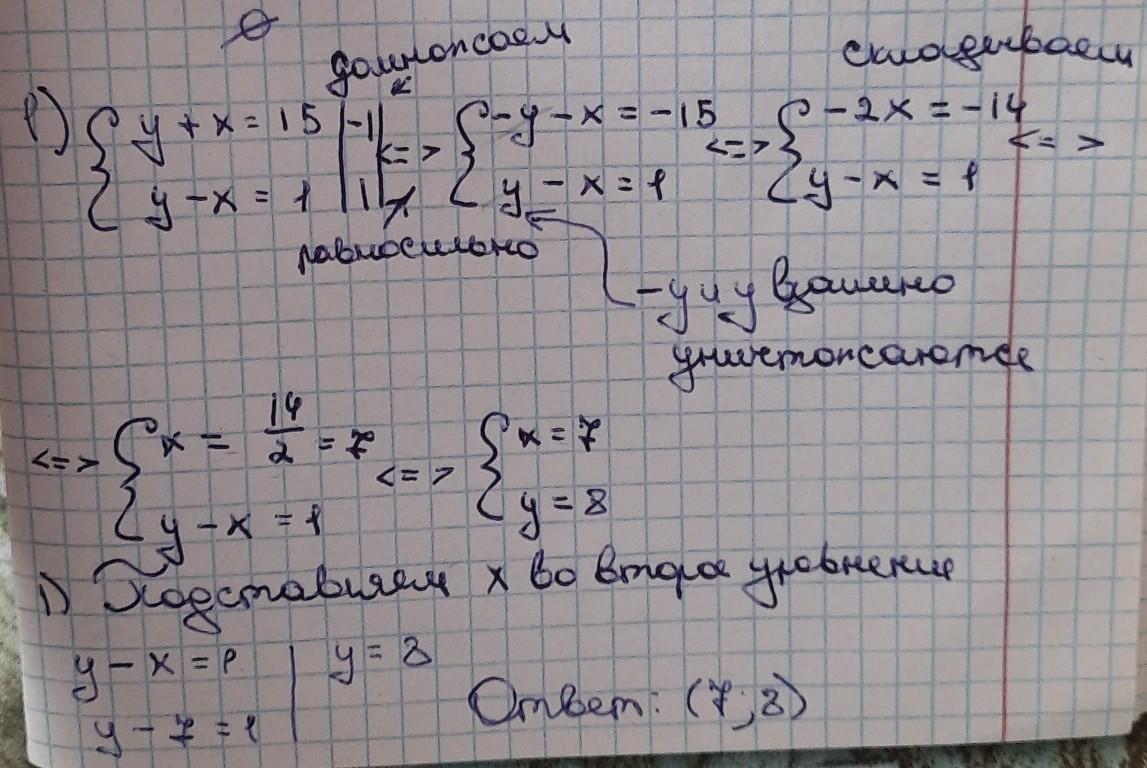 домножаем
складываем
1) { y + x = 15 | -1 | <=> { -y - x = -15 <=> { -2x = -14 <=>
y - x = 1 | 1 | y - x = 1 y - x = 1
равносильно
-y и y взаимно
уничтожаются
<=> { x = 14/2 = 7 <=> { x = 7
y - x = 1 y = 8
1) Подставляем x во второе уравнение
y - x = 1 | y = 8
y - 7 = 1 | Ответ: (7; 8)